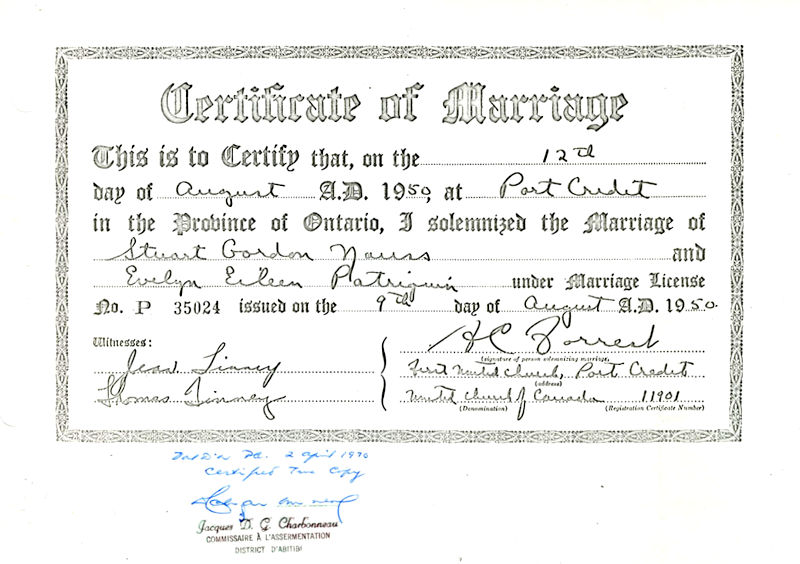 Certificate of Marriage
This is to Certify that, on the 12th
day of August A.D. 1950, at Port Credit
in the Province of Ontario, I solemnized the Marriage of
Stuart Gordon Nauss and
Evelyn Eileen Patriquin under Marriage License
No. P 35024 issued on the 9th day of August A.D. 1950.
Witnesses:
Jean Finney
Thomas Finney
H C Forrest
(signature of person solemnizing marriage.)
First United Church, Port Credit
(address)
United Church of Canada 11901
(Denomination) (Registration Certificate Number)
2 April 1970
Certified True Copy
Jacques D. G. Charbonneau
COMMISSAIRE À L'ASSERMENTATION
DISTRICT D'ABITIBI